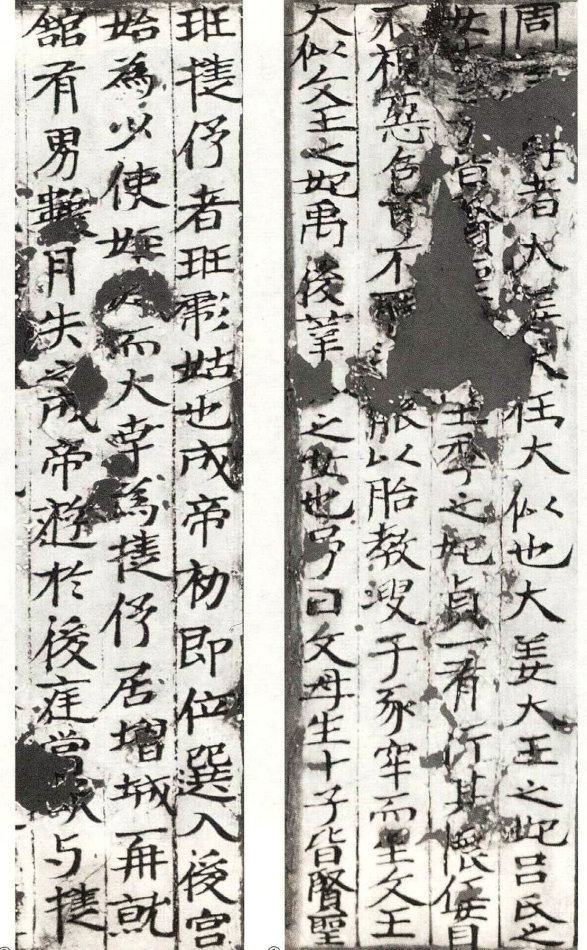 周者大姜大任大似也大姜大王之妃吕氏之
女皆賢王季之妃貞一有行其懷任目
不視惡色耳不能以胎教溲于豕牢而生文王
大似文王之妃禹後莘之女也号曰文母生十子皆賢聖
班揵伃者班彪姑也成帝初即位選入後宮
始為少使而大幸為揵伃居增城一再就
館有男數月失之成帝遊於後庭嘗欲与揵